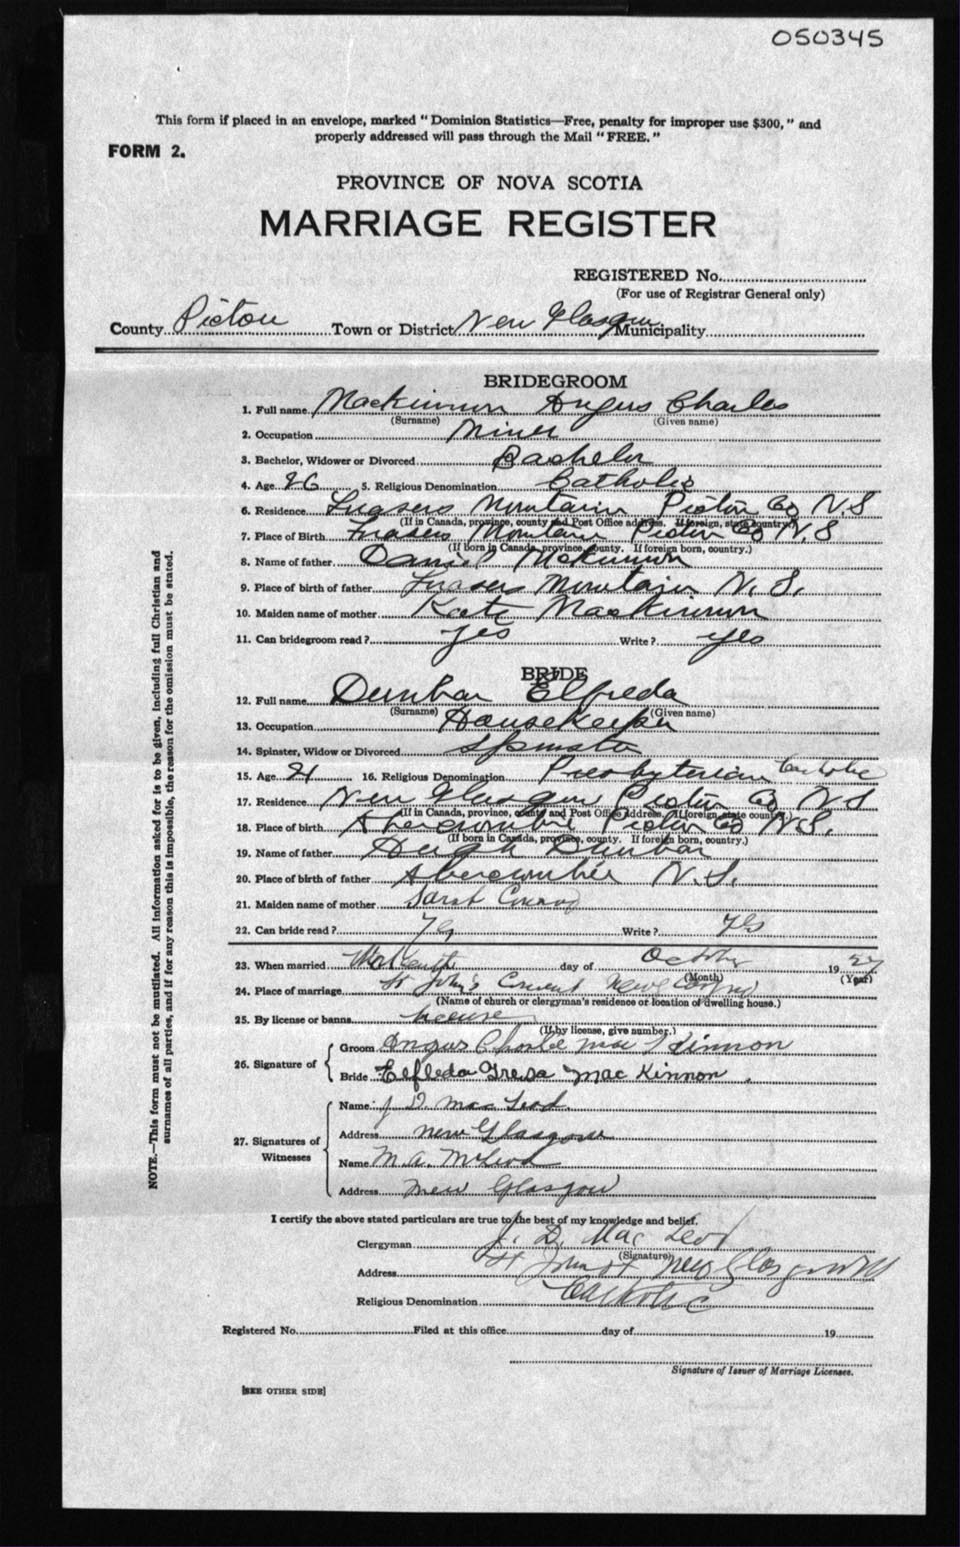 050345
This form if placed in an envelope, marked "Dominion Statistics—Free, penalty for improper use $300," and
properly addressed will pass through the Mail "FREE."
FORM 2.
PROVINCE OF NOVA SCOTIA
MARRIAGE REGISTER
REGISTERED No.
(For use of Registrar General only)
County Pictou Town or District New Glasgow Municipality
BRIDEGROOM
1. Full name MacKinnon Angus Charles
(Surname) (Given name)
2. Occupation Miner
3. Bachelor, Widower or Divorced Bachelor
4. Age 26 5. Religious Denomination Catholic
6. Residence Frasers Mountain Pictou Co N.S
(If in Canada, province, county and Post Office address. If foreign, state country.)
7. Place of Birth Frasers Mountain Pictou Co N.S
(If born in Canada, province, county. If foreign born, country.)
8. Name of father Daniel McKinnon
9. Place of birth of father Frasers Mountain N.S.
10. Maiden name of mother Kate MacKinnon
11. Can bridegroom read? yes Write? yes
BRIDE
12. Full name Dunbar Elfreda
(Surname) (Given name)
13. Occupation Housekeeper
14. Spinster, Widow or Divorced Spinster
15. Age 21 16. Religious Denomination Presbyterian Catholic
17. Residence New Glasgow Pictou Co N.S
(If in Canada, province, county and Post Office Address. If foreign, state country.)
18. Place of birth Abercrombie Pictou Co N.S.
(If born in Canada, province, county. If foreign born, country.)
19. Name of father Hugh Dunbar
20. Place of birth of father Abercrombie N.S.
21. Maiden name of mother Sarah Conrad
22. Can bride read? Write? Yes
23. When married day of October 1927
(Month) (Year)
24. Place of marriage St John's New Glasgow
(Name of church or clergyman's residence or location of dwelling house.)
25. By license or banns license
(If by license, give number.)
26. Signature of
Groom Angus Charlie MacKinnon
Bride Elfleda Tresa MacKinnon.
27. Signatures of Witnesses
Name J D. MacLeod
Address New Glasgow
Name M.A. McLeod
Address New Glasgow
I certify the above stated particulars are true to the best of my knowledge and belief.
Clergyman J. D. MacLeod
(Signature)
Address New Glasgow NS
Religious Denomination Catholic
Registered No. Filed at this office day of 19
Signature of Issuer of Marriage Licenses.
[SEE OTHER SIDE]
NOTE.—This form must not be mutilated. All information asked for is to be given, including full Christian and
surnames of all parties, and if for any reason this is impossible, the reason for the omission must be stated.